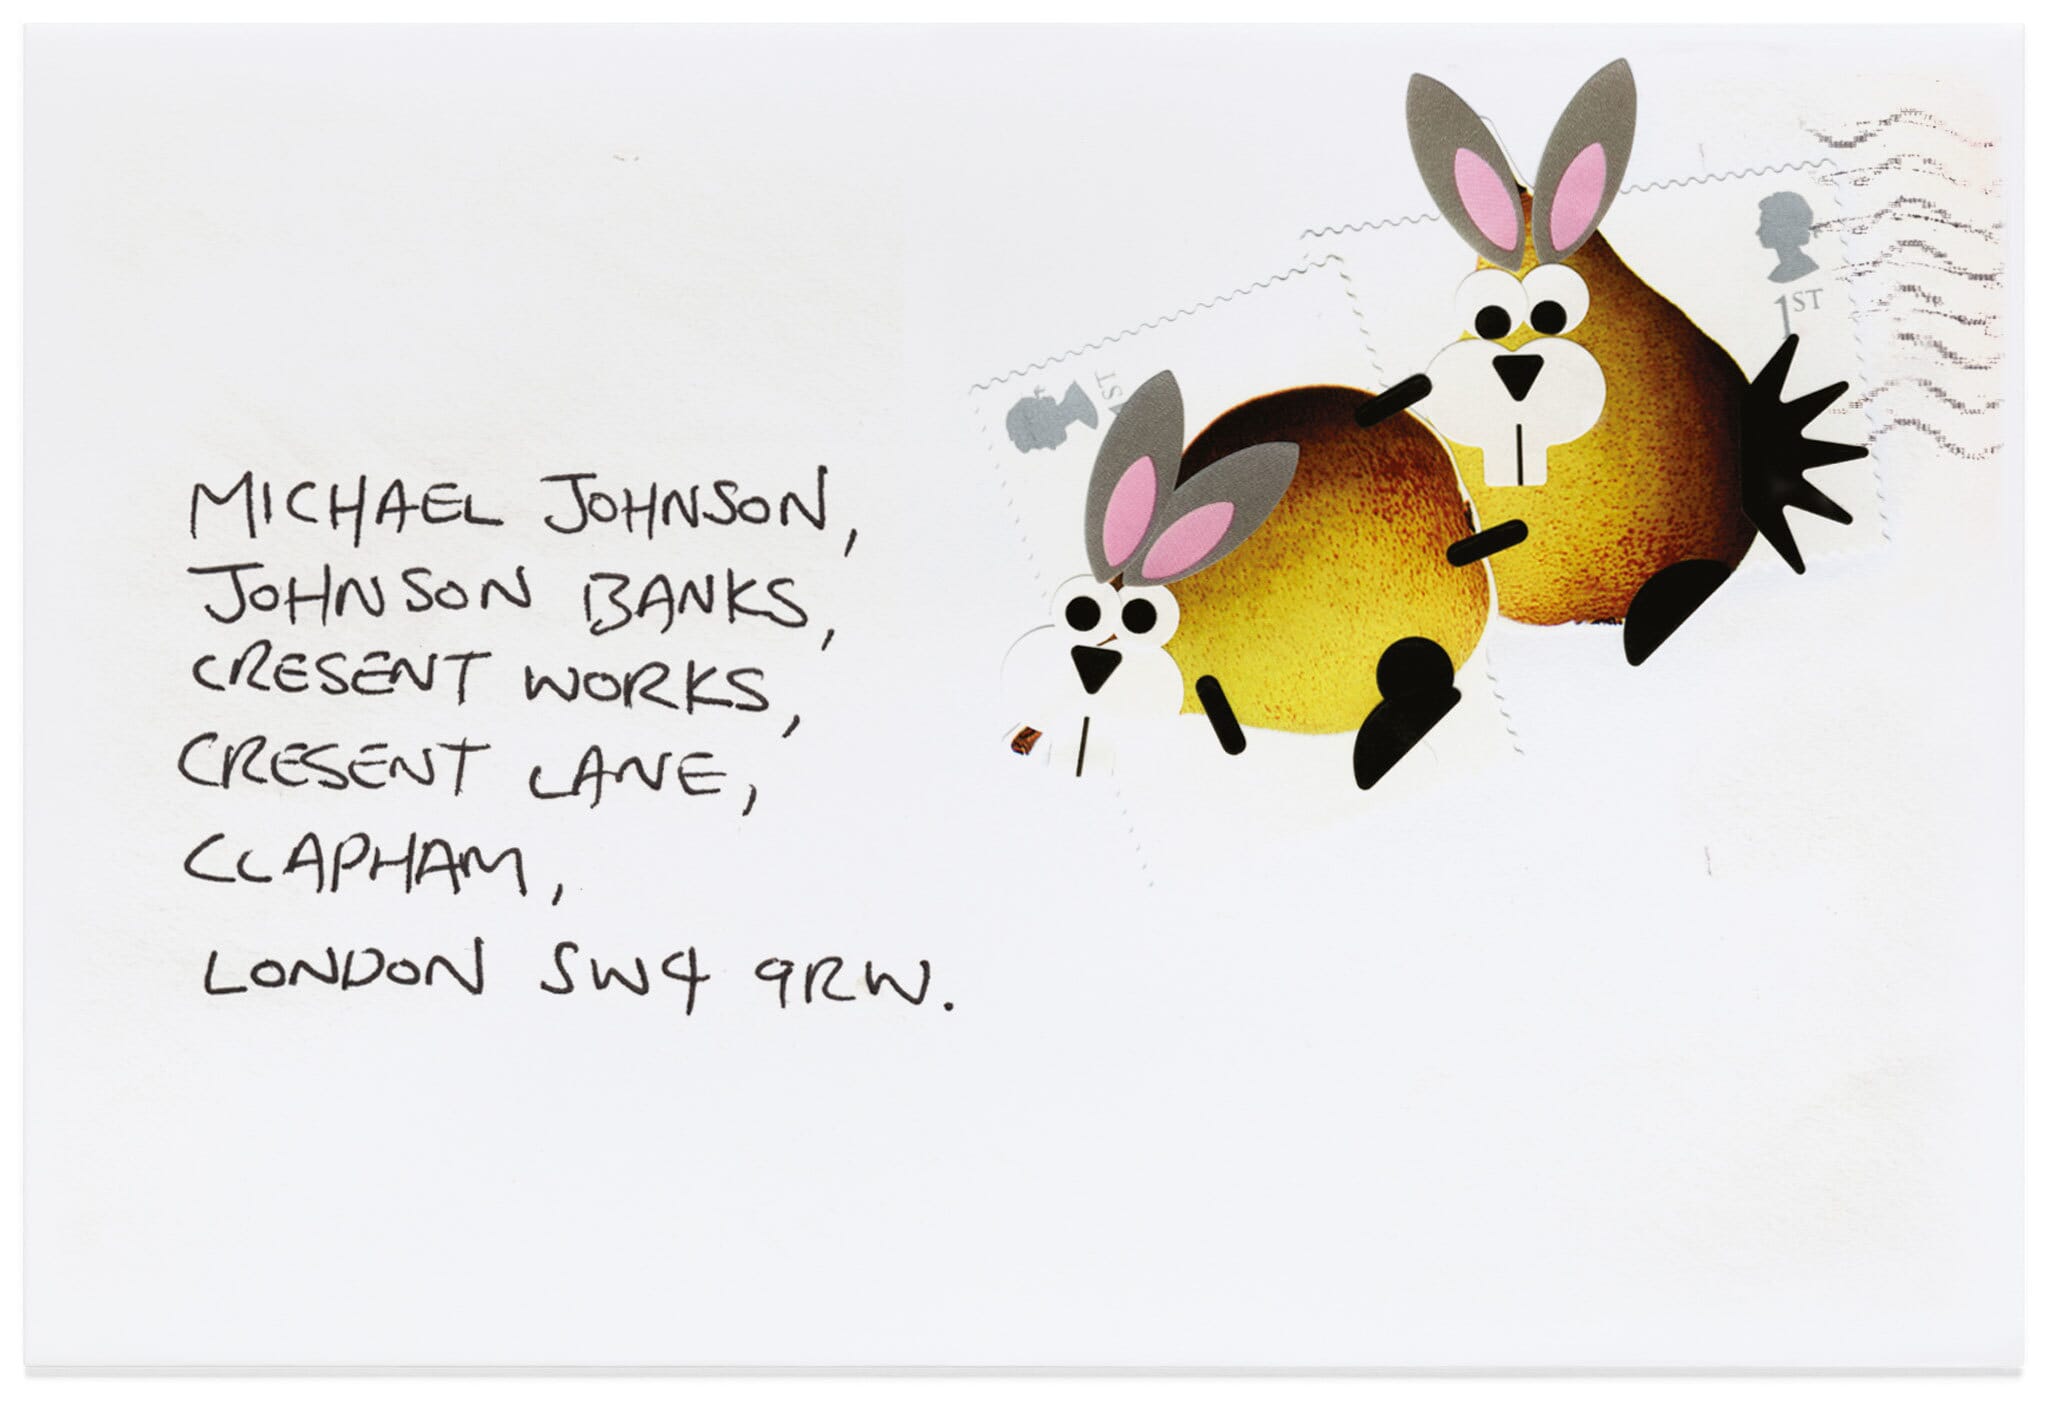 MICHAEL JOHNSON,
JOHNSON BANKS,
CRESENT WORKS,
CRESENT LANE,
CLAPHAM,
LONDON SW4 9RW.
1ST
1ST